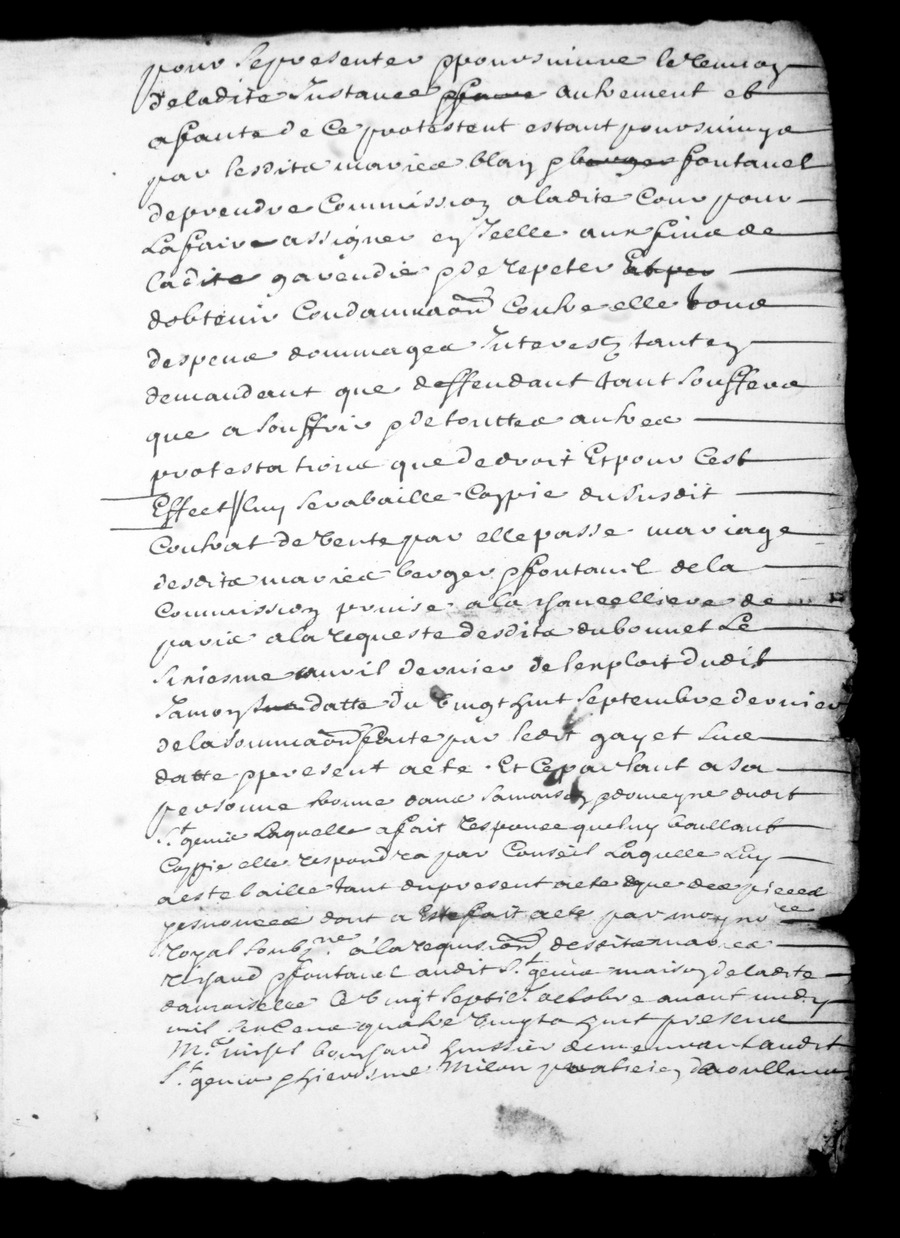 pour se presenter & poursuivre le renvoy
de ladite Instance autrement et
a faute de ce protestent estant poursuivys
par lesdits mariés blay & fontanel
de prendre Commission a ladite Cour pour
La faire assigner en Icelle aux fins de
ladite garendie & de repeter
dobtenir Condamnaon Contre elle tous
despens dommages Interests tant en
demandant que deffendant tant soufferts
que a souffrir & de touttes autres
protestations que de droit Et pour Cest
Effect luy sera baille Coppie du susdit
Contrat de vente par elle passé mariage
desdits mariés berger & fontanel de la
Commission prinse a la chancelliere de
paris a la requeste desdits du bonnet Le
avril dernier de lexploit dudit
datte du vingt huit septembre dernier
de la sommaon faite par ledit gay et
datte & present acte Et Ce parlant a sa
personne trouvée dans sa maison & domeyne audit
St genis Laquelle a fait response que luy baillant
Coppie elle respondra par Conseil Laquelle Luy
a este baillé tant du present acte que des pieces
y enoncées dont a Esté fait acte par moy nore
royal soubzne a la requisiaon desdits mariés
& fontanel audit St genis maison de ladite
damoiselle Ce vingt septie octobre avant midy
mil six Cens quatre vingts huit presens
Mre bouchand huissier demeurant audit
St genis & hierosme Milan praticien